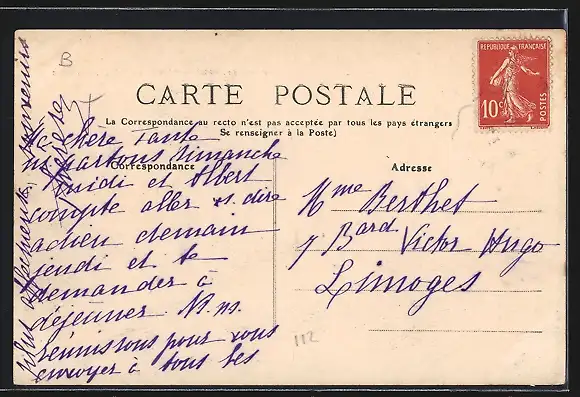 B
CARTE POSTALE
La Correspondance au recto n'est pas acceptée par tous les pays étrangers
Se renseigner à la Poste)
Correspondance
Adresse
REPUBLIQUE FRANÇAISE
10c
POSTES
Ma chère Tante
n. partons dimanche
midi et Albert
compte aller v. dire
adieu demain
jeudi et te
demander à
déjeuner N. n.
réunissons pour vous
envoyer à tous les
plus affectueux souvenirs
Mme Berthet
7 Bard Victor Hugo
Limoges
112